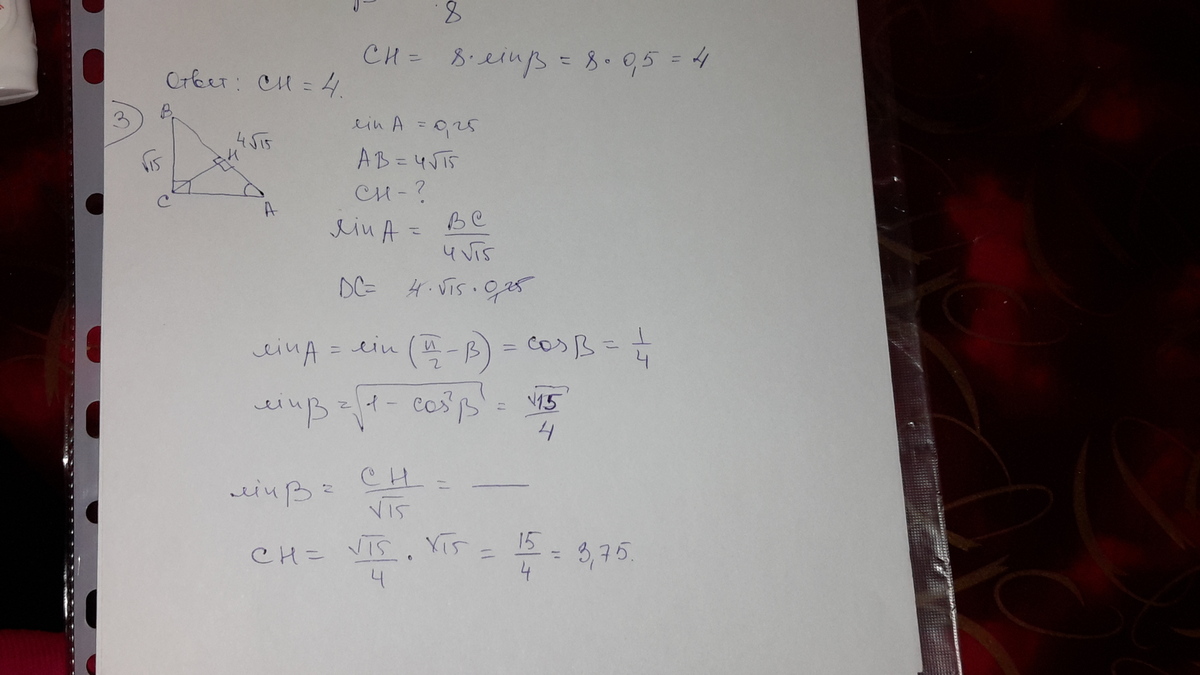 8
CH = 8·sinβ = 8·0,5 = 4
Ответ: CH = 4.
3)
B
4√15
H
√15
C
A
sin A = 0,25
AB = 4√15
CH - ?
sin A = BC / 4√15
BC = 4·√15·0,25
sin A = sin (π/2 - B) = cos B = 1/4
sin B = √(1 - cos² B) = √15 / 4
sin B = CH / √15 = —
CH = √15 / 4 · √15 = 15 / 4 = 3,75.